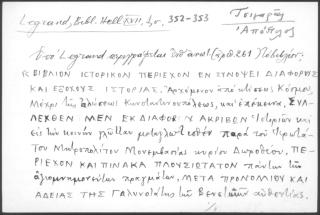 Legrand, Bibl. Hell. XVII, 352-353
Τσιγαρᾶς
Ἀπόστολος
Legrand περιγράφεται ὑπ' ἀριθ. 261
« ΒΙΒΛΙΟΝ ΙΣΤΟΡΙΚΟΝ ΠΕΡΙΕΧΟΝ ΕΝ ΣΥΝΟΨΕΙ ΔΙΑΦΟΡΟΥΣ
ΚΑΙ ΕΞΟΧΟΥΣ ΙΣΤΟΡΙΑΣ. Ἀρχόμενον ἀπὸ κτίσεως Κόσμου,
Μέχρι τῆς ἁλώσεως Κωνσταντινουπόλεως, καὶ ἐπέκεινα. ΣΥΛ
ΛΕΧΘΕΝ ΜΕΝ ΕΚ ΔΙΑΦΟΡΩΝ ΑΚΡΙΒΩΝ Ἱστοριῶν καὶ
εἰς τὴν κοινὴν γλῶτταν μεταγλωττισθὲν παρὰ τοῦ Ἱερωτά-
του Μητροπολίτου Μονεμβασίας κυρίου Δωροθέου. ΠΕ-
ΡΙΕΧΟΝ ΚΑΙ ΠΙΝΑΚΑ ΠΛΟΥΣΙΩΤΑΤΟΝ πάντων τῶν
ἀξιομνημονεύτων πραγμάτων. ΜΕΤΑ ΠΡΟΝΟΜΙΟΥ ΚΑΙ
ΑΔΕΙΑΣ ΤΗΣ Γαληνοτάτης τῶν Βενετῶν αὐθεντίας.